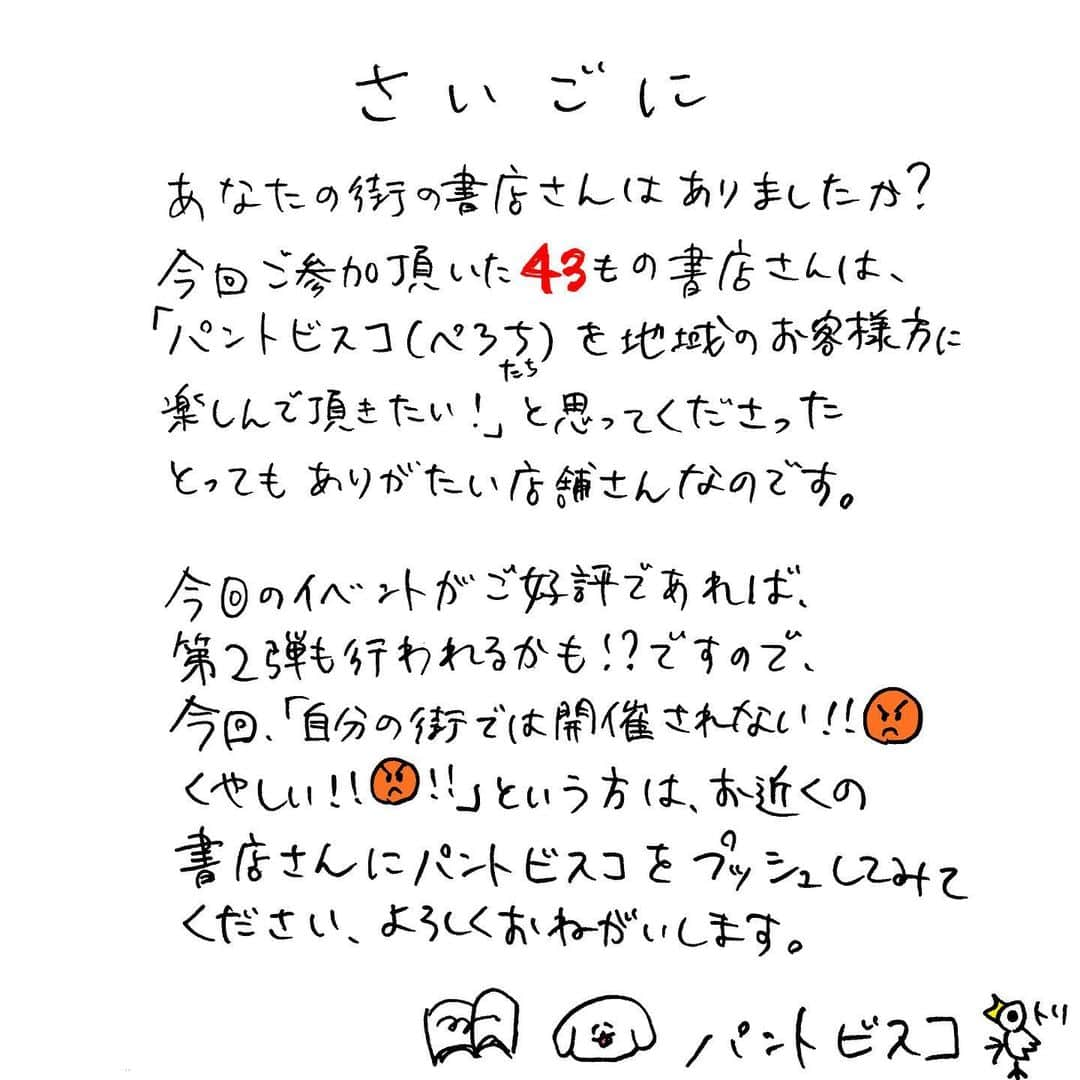 さいごに
あなたの街の書店さんはありましたか?
今回ご参加頂いた43もの書店さんは、
「パントビスコ(ぺろち)を地域のお客様方に
たち
楽しんで頂きたい!」と思ってくださった
とってもありがたい店舗さんなのです。
今回のイベントがご好評であれば、
第2弾も行われるかも!?ですので、
今回、「自分の街では開催されない!!
くやしい!!!!」という方は、お近くの
書店さんにパントビスコをプッシュしてみて
ください、よろしくおねがいします。
パントビスコ
トリ